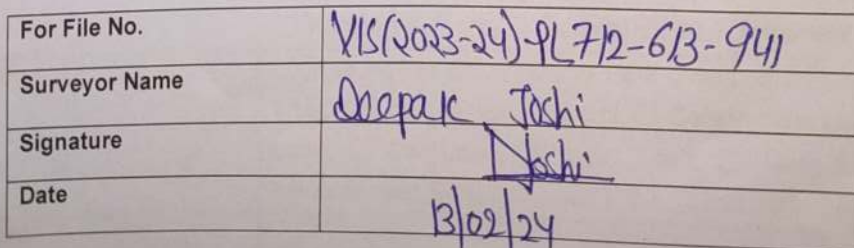 For File No. VIS(2023-24)-PL712-613-941
Surveyor Name Deepak Joshi
Signature DJoshi
Date 13/02/24